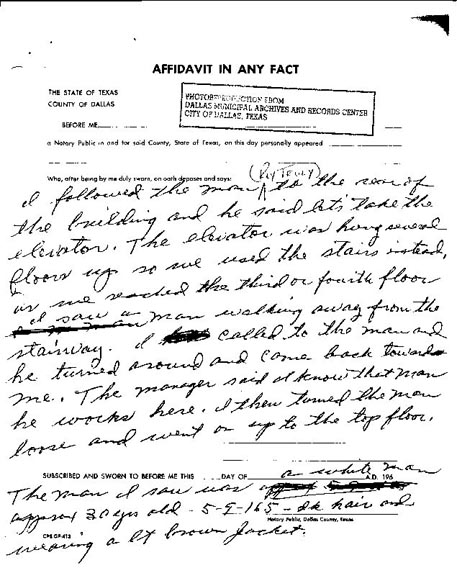 AFFIDAVIT IN ANY FACT
THE STATE OF TEXAS
COUNTY OF DALLAS
PHOTOREPRODUCTION FROM
DALLAS MUNICIPAL ARCHIVES AND RECORDS CENTER
CITY OF DALLAS, TEXAS
BEFORE ME,
a Notary Public in and for said County, State of Texas, on this day personally appeared
Who, after being by me duly sworn, on oath deposes and says:
(Roy Truly)
I followed the man to the rear of
the building and he said let's take the
elevator. The elevator was hung several
floors up so we used the stairs instead.
as we reached the third or fourth floor
I saw a man walking away from the
stairway. I called to the man and
he turned around and came back toward
me. The manager said I know that man
he works here. I then turned the man
loose and went on up to the top floor.
SUBSCRIBED AND SWORN TO BEFORE ME THIS DAY OF A.D. 196
a white man
The man I saw was
approx 30 yrs old - 5-9 - 165 - dk hair and
Notary Public, Dallas County, Texas
wearing a lt brown jacket.
CPS GP-413